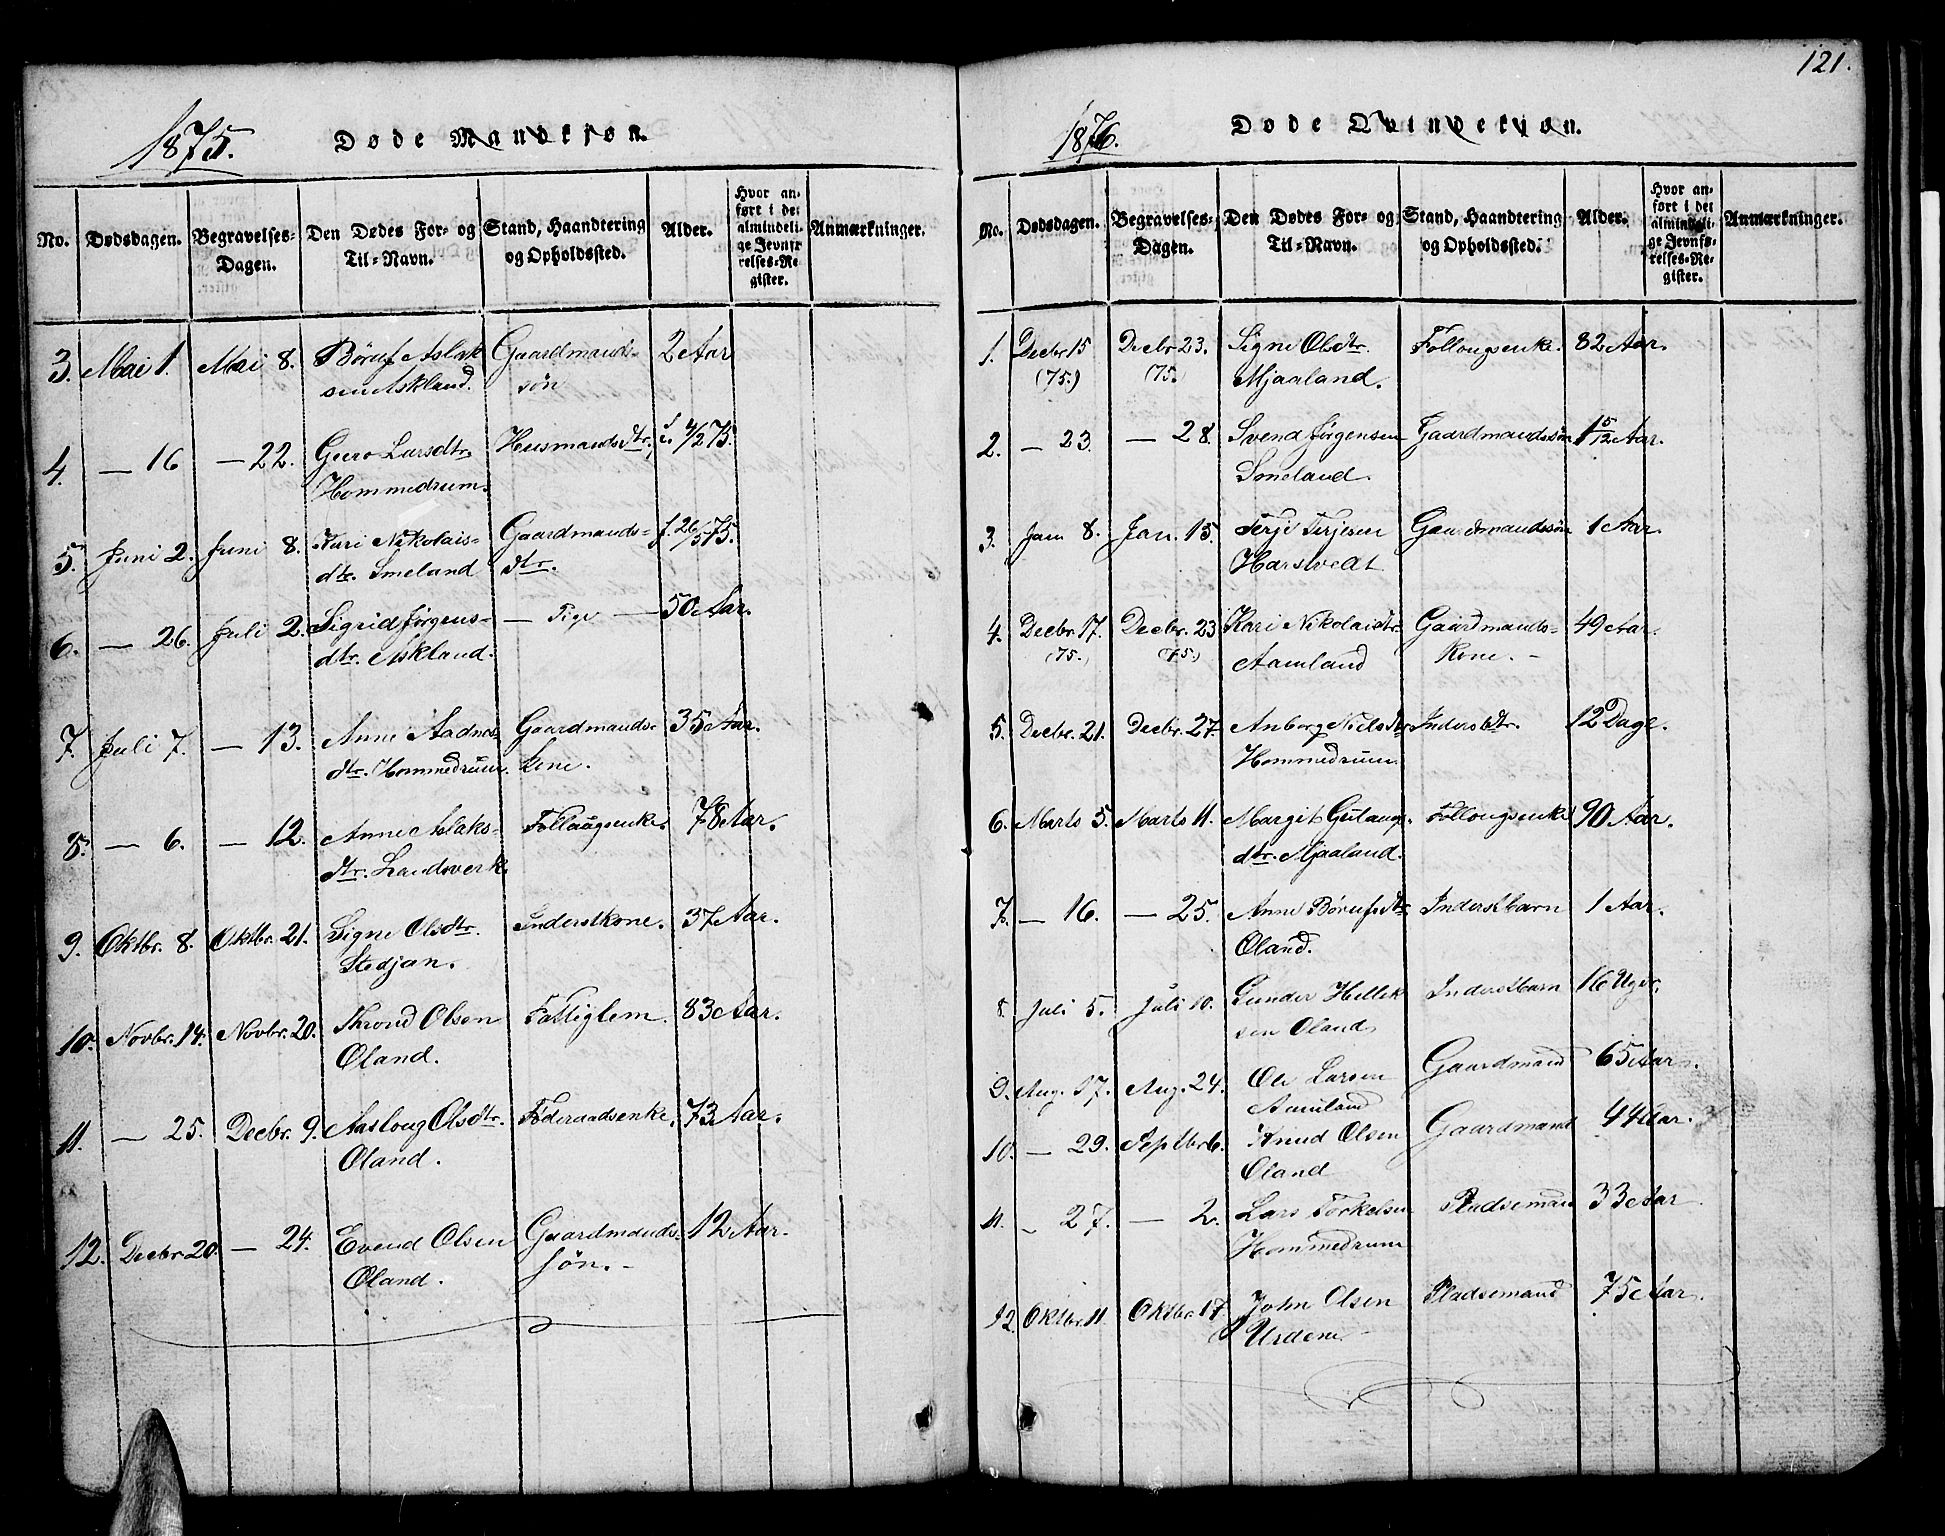 121.
1875.
Døde Mandkjøn.
No.
Dødsdagen.
Begravelses-
Dagen.
Den Dødes For- og
Til-Navn.
Stand, Haandtering
og Opholdssted.
Alder.
Hvor an-
ført i det
almindeli-
ge Jevnfø-
relses-Re-
gister.
Anmærkninger.
3. Mai 1. Mai 8. Børuf Aslak Gaardmands- 2 Aar
sen Askland. søn
4. — 16 — 22. Guro Larsdtr. Husmandsdtr. 4/2 75.
Hommedrum.
5. Juni 2. Juni 8. Kari Nikolais- Gaardmands- f. 26/5 75.
dtr. Smeland dtr.
6. — 26. Juli 2. Sigrid Jørgens- — Pige — 50 Aar.
dtr. Askland.
7. Juli 7. — 13. Anne Aadnes- Gaardmands- 35 Aar.
dtr. Hommedrum. kone.
8. — 6. — 12. Anne Aslaks- Follaugsenke. 78 Aar.
dtr. Landsverk.
9. Oktbr. 8. Oktbr. 21. Signe Olsdtr. Inderstkone. 37 Aar.
Stedjan.
10. Novbr. 14. Novbr. 20. Thrond Olsen Fattiglem. 83 Aar.
Øland.
11. — 25. Decbr. 9. Aasloug Olsdtr. Føderaadsenke. 73 Aar.
Øland.
12. Decbr 20. — 24. Evend Olsen Gaardmands- 12 Aar.
Øland. søn. -
1876.
Døde Qvindekjøn.
No.
Dødsdagen.
Begravelses-
Dagen.
Den Dødes For- og
Til-Navn.
Stand, Haandtering
og Opholdssted.
Alder.
Hvor an-
ført i det
almindeli-
ge Jevnfø-
relses-Re-
gister.
Anmærkninger.
1. Decbr 15 Decbr 23. Signe Olsdtr. Follougsenke. 82 Aar.
(75.) (75.) Mjaaland.
2. — 23. — 28. Svend Jørgensen Gaardmandssøn 1 5/12 Aar.
Smeland.
3. Jan 8. Jan. 15. Terje Terjesen Gaardmandssøn 1 Aar.
Harstvedt
4. Decbr. 17. Decbr. 23 Kari Nikolaidtr. Gaardmands- 49 Aar.
(75.) (75.) Aamland Kone. -
5. Decbr. 21. Decbr. 27. Anborg Nielsdtr Inderstdtr. 12 Dage.
Hommedrum
6. Marts 5. Marts 11. Margit Gutaugs- Follougsenke 90 Aar.
dtr. Mjaaland.
7. — 16. — 25. Anne Børufsdtr Inderstbarn 1 Aar.
Øland.
8. Juli 5. Juli 10. Gunder Hellek Inderstbarn 16 Uger.
sen Øland
9. Aug. 17. Aug. 24. Ole Larsen Gaardmand 65 Aar.
Aamland
10. — 29. Septbr 6. Knud Olsen Gaardmand 44 Aar.
Øland
11. — 27. — 2. Lars Torkelsen Pladsemand 33 Aar
Hommedrum
12. Oktbr. 11. Oktbr. 17 John Olsen Pladsemand 75 Aar.
Urdem